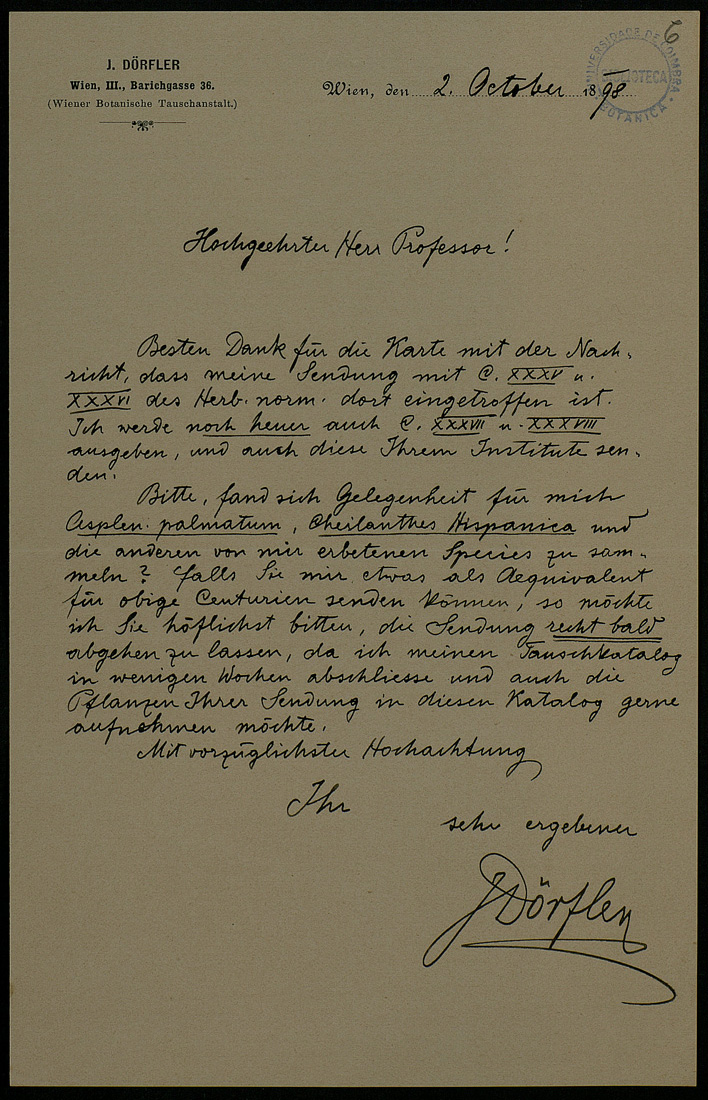 J. DÖRFLER
Wien, III., Barichgasse 36.
(Wiener Botanische Tauschanstalt.)
Wien, den 2. October 1898
6
UNIVERSIDADE DE COIMBRA
BIBLIOTECA
BOTANICA
Hochgeehrter Herr Professor!
Besten Dank für die Karte mit der Nach-
richt, dass meine Sendung mit C. XXXV u.
XXXVI des Herb. norm. dort eingetroffen ist.
Ich werde noch heuer auch C. XXXVII u. XXXVIII
ausgeben, und auch diese Ihrem Institute sen-
den.
Bitte, fand sich Gelegenheit für mich
Asplen. palmatum, Cheilanthes Hispanica und
die anderen von mir erbetenen Species zu sam-
meln? Falls Sie mir etwas als Aequivalent
für obige Centurien senden können, so möchte
ich Sie höflichst bitten, die Sendung recht bald
abgehen zu lassen, da ich meinen Tauschkatalog
in wenigen Wochen abschliesse und auch die
Pflanzen Ihrer Sendung in diesen Katalog gerne
aufnehmen möchte.
Mit vorzüglichster Hochachtung
Ihr
sehr ergebener
J Dörfler